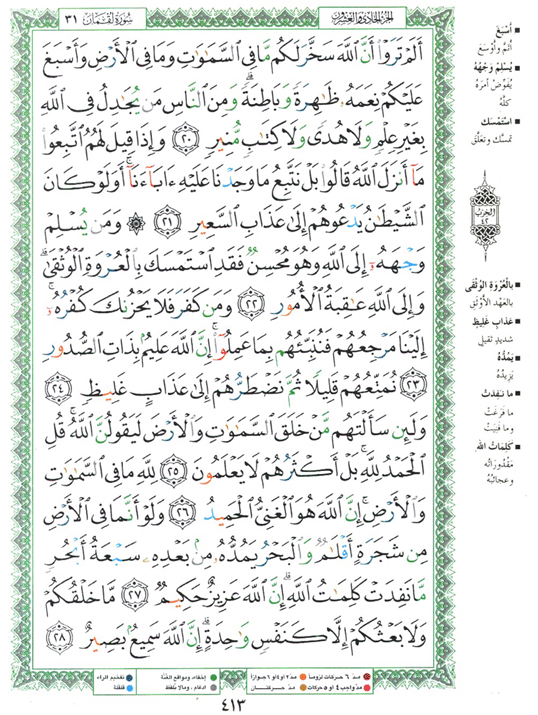 سُورَةُ لُقْمَان ٣١
الجزء الحادي والعشرون
أَلَمْ تَرَوْا۟ أَنَّ ٱللَّهَ سَخَّرَ لَكُم مَّا فِى ٱلسَّمَٰوَٰتِ وَمَا فِى ٱلْأَرْضِ وَأَسْبَغَ
عَلَيْكُمْ نِعَمَهُۥ ظَٰهِرَةً وَبَاطِنَةً ۗ وَمِنَ ٱلنَّاسِ مَن يُجَٰدِلُ فِى ٱللَّهِ
بِغَيْرِ عِلْمٍ وَلَا هُدًى وَلَا كِتَٰبٍ مُّنِيرٍ ٢٠ وَإِذَا قِيلَ لَهُمُ ٱتَّبِعُوا۟
مَآ أَنزَلَ ٱللَّهُ قَالُوا۟ بَلْ نَتَّبِعُ مَا وَجَدْنَا عَلَيْهِ ءَابَآءَنَآ ۚ أَوَلَوْ كَانَ
ٱلشَّيْطَٰنُ يَدْعُوهُمْ إِلَىٰ عَذَابِ ٱلسَّعِيرِ ٢١ ۞ وَمَن يُسْلِمْ
وَجْهَهُۥٓ إِلَى ٱللَّهِ وَهُوَ مُحْسِنٌ فَقَدِ ٱسْتَمْسَكَ بِٱلْعُرْوَةِ ٱلْوُثْقَىٰ ۗ
وَإِلَى ٱللَّهِ عَٰقِبَةُ ٱلْأُمُورِ ٢٢ وَمَن كَفَرَ فَلَا يَحْزُنكَ كُفْرُهُۥٓ ۚ
إِلَيْنَا مَرْجِعُهُمْ فَنُنَبِّئُهُم بِمَا عَمِلُوٓا۟ ۚ إِنَّ ٱللَّهَ عَلِيمٌۢ بِذَاتِ ٱلصُّدُورِ
٢٣ نُمَتِّعُهُمْ قَلِيلًا ثُمَّ نَضْطَرُّهُمْ إِلَىٰ عَذَابٍ غَلِيظٍ ٢٤
وَلَئِن سَأَلْتَهُم مَّنْ خَلَقَ ٱلسَّمَٰوَٰتِ وَٱلْأَرْضَ لَيَقُولُنَّ ٱللَّهُ ۚ قُلِ
ٱلْحَمْدُ لِلَّهِ ۚ بَلْ أَكْثَرُهُمْ لَا يَعْلَمُونَ ٢٥ لِلَّهِ مَا فِى ٱلسَّمَٰوَٰتِ
وَٱلْأَرْضِ ۚ إِنَّ ٱللَّهَ هُوَ ٱلْغَنِىُّ ٱلْحَمِيدُ ٢٦ وَلَوْ أَنَّمَا فِى ٱلْأَرْضِ
مِن شَجَرَةٍ أَقْلَٰمٌ وَٱلْبَحْرُ يَمُدُّهُۥ مِنۢ بَعْدِهِۦ سَبْعَةُ أَبْحُرٍ
مَّا نَفِدَتْ كَلِمَٰتُ ٱللَّهِ ۗ إِنَّ ٱللَّهَ عَزِيزٌ حَكِيمٌ ٢٧ مَّا خَلْقُكُمْ
وَلَا بَعْثُكُمْ إِلَّا كَنَفْسٍ وَٰحِدَةٍ ۗ إِنَّ ٱللَّهَ سَمِيعٌۢ بَصِيرٌ ٢٨
■ أَسْبَغَ
أتمَّ وأوْسَعَ
■ يُسْلِمْ وَجْهَهُ
يُفَوِّضْ أمْرَهُ
كلَّه
■ اسْتَمْسَكَ
تمسَّك وتعلَّق
الحزب
٤٢
■ بالْعُرْوَةِ الْوُثْقَى
بالعَهْدِ الأوْثَقِ
■ عَذَابٍ غَلِيظٍ
شديدٍ ثقيلٍ
■ يَمُدُّهُ
يَزِيدُهُ
■ مَا نَفِدَتْ
ما فَرَغَتْ
وما فَنِيَتْ
■ كَلِمَاتُ اللهِ
مَقْدُورَاتُه
وعجائبُه
مدّ ٦ حركات لزوماً مدّ ٢ او ٤ او ٦ جوازاً إخفاء، ومواقع الغُنَّة تفخيم الراء
مدّ واجب ٤ او ٥ حركات مدّ حركتان ادغام، ومالا يُلفَظ قلقلة
٤١٣